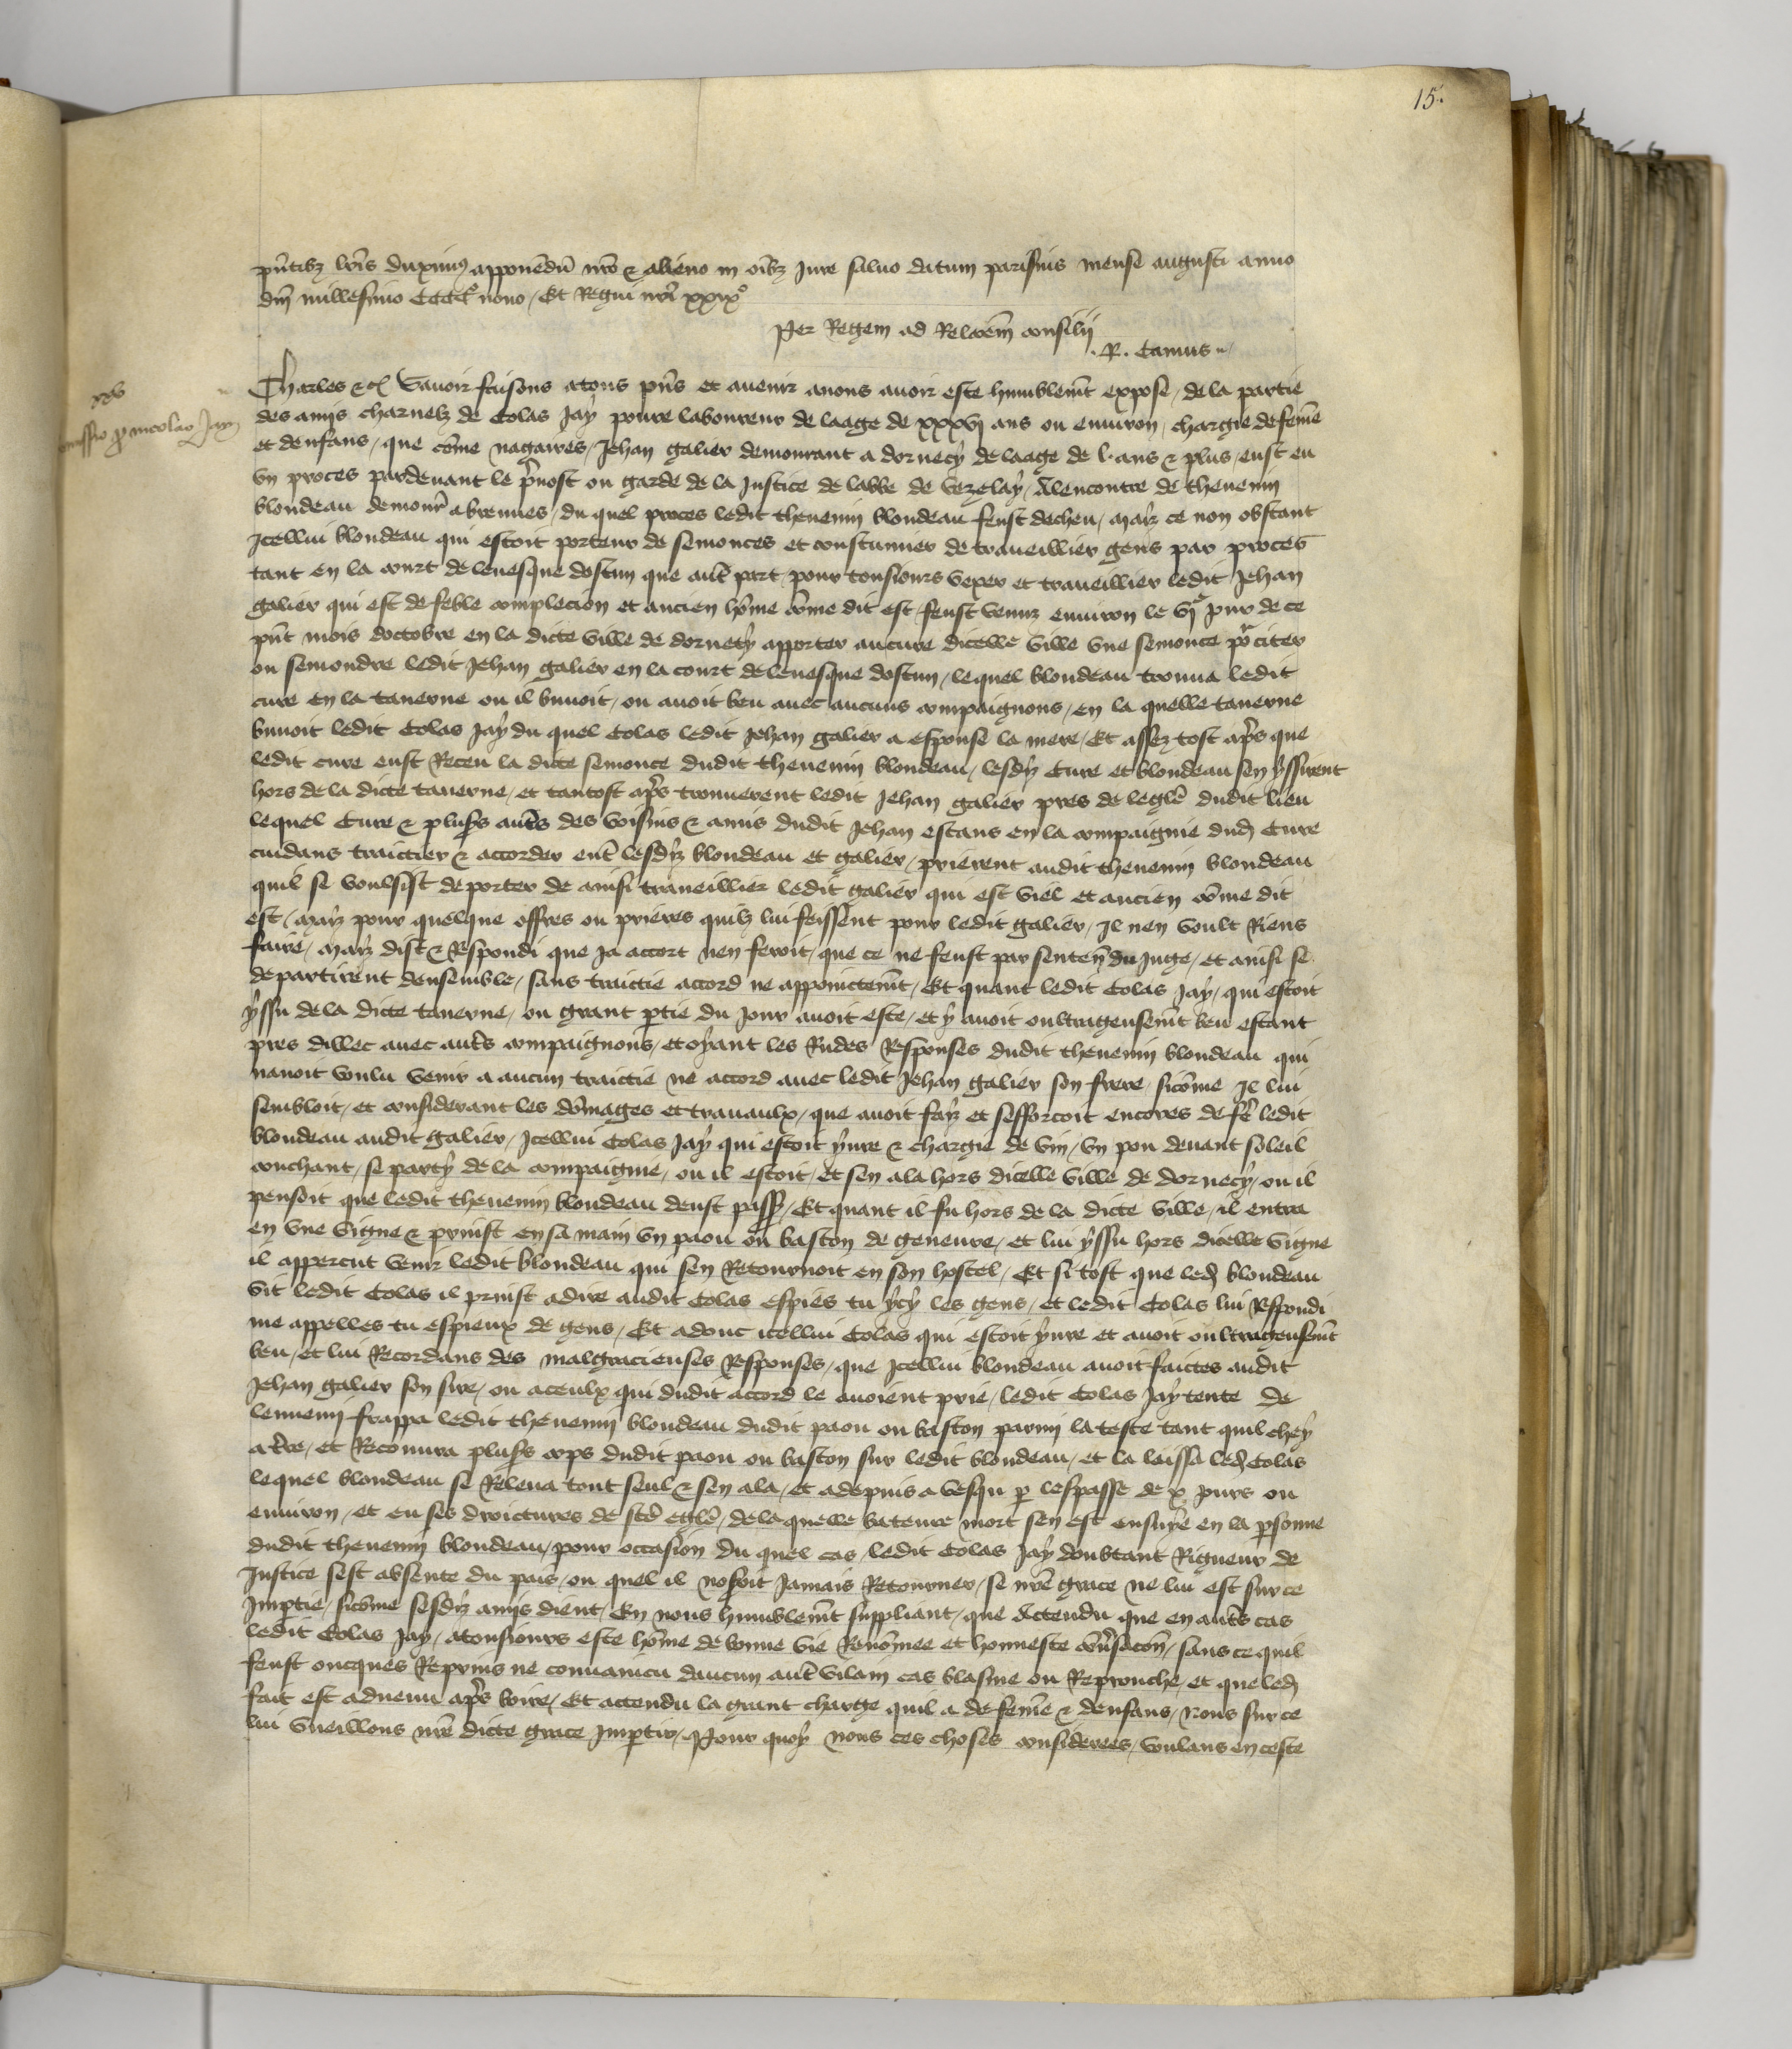 15.
pñtibȝ lr̃is duximꝰ apponẽdũ nr̃o & alieno in oĩbȝ Jure saluo datum parisius mense augusti anno
dñi millesimo CCCC° nono / Et Regni nr̃i xxix°
Per Regem ad Relacõem consilij
. R. Camus
Charles &c̃ Sauoir faisons atous pñs et auenir anous auoir este humblemẽt expose / de la partie
Remissio ꝓ nicolao Jay
des amis charnelz de Colas Jaÿ poure laboureur de laage de xxxvj ans ou enuiron / chargie de fem̃e
et denfans / que com̃e nagaires / Jehan galier demourant a dornecÿ de laage de l. ans & plus / eust eu
vn proces pardeuant le p̃uost ou garde de la Justice de labbe de vezelaÿ / Alencontre de theuenin
blondeau demourñ abreuues / du quel proces ledit theuenin blondeau feust decheu / maiz ce non obstant
Icellui blondeau qui estoit porteur de semonces et coustumier de traueillier gens par proces
tant en la court de leuesque dostun que aut̃ part / pour tousiours vexer et traueillier ledit Jehan
galier qui est de feble complecion et ancien hõme cõme dit est / feust venuz enuiron le vjᵉ jour de ce
pñt mois doctobre en la dicte ville de dornecÿ apporter aucure dicelle ville vne semonce por̃ citer
ou semondre ledit Jehan galier en la court de leuesque dostun / lequel blondeau trouua ledit
cure en la tauerne ou il buuoit / ou auoit beu auec aucuns compaignons / en la quelle tauerne
buuoit ledit Colas Jaÿ du quel Colas ledit Jehan galier a espouse la mere / Et assez tost apr̃s que
ledit cure eust Receu la dicte semonce dudit theuenin blondeau / lesdiz Cure et blondeau sen ÿssirent
hors de la dicte tauerne / et tantost apr̃s trouuerent ledit Jehan galier pres de leglẽ dudit lieu
lequel Cure & plusꝰs aut̃s des voisins & amis dudit Jehan estans en la compaignie dud̃ Cure
cuidans traictier & accorder ent̃ lesdiz blondeau et galier / prierent audit theuenin blondeau
quil se voulsist deporter de ainsi traueillier ledit galier qui est viel et ancien cõme dit
est / maiz pour quelque offres ou prieres quilz lui feissent pour ledit galier / Il nen voult Riens
faire / maiz dist & Respondi que Ja accort nen feroit / que ce ne feust par senten̾ du Juge / et ainsi se
departirent densemble / sans traictie accord ne appoinctemẽt / Et quant ledit Colas Jaÿ / qui estoit
ÿssu de la dicte tauerne / ou grant ꝑtie du Jour auoit este / et ÿ auoit oultrageusemẽt beu estant
pres dillec auec aut̃s compaignons / et oÿant les Rudes Responses dudit theuenin blondeau qui
nauoit voulu venir a aucun traictie ne accord auec ledit Jehan galier son frere / sicõme Il lui
sembloit / et considerant les dõmages et trauaulx / que auoit faiz et sefforcoit encores de fẽ ledit
blondeau audit galier / Icellui Colas Jaÿ qui estoit ÿure & chargie de vin / vn pou deuant soleil
couchant / se partÿ de la compaignie / ou il estoit / et sen ala hors dicelle ville de dornecÿ / ou il
pensoit que ledit theuenin blondeau deust passꝰ / Et quant il fu hors de la dicte ville / il entra
en vne vigne & prinst en sa main vn paou ou baston de geneure / et lui ÿssu hors dicelle vigne
il appercut venir ledit blondeau qui sen Retournoit en son hostel / Et si tost que led̃ blondeau
vit ledit Colas il prinst adire audit Colas espies tu ÿcÿ les gens / et ledit Colas lui Respondi
me appelles tu espieux de gens / Et adonc icellui Colas qui estoit ÿure et auoit oultrageusemẽt
beu / et lui Recordans des malgracieuses Responses / que Icellui blondeau auoit faictes audit
Jehan galier son sire / ou aceulx qui dudit accord le auoient prie / ledit Colas Jaÿ tente de
lennemi frappa ledit theuenin blondeau dudit paou ou baston parmi la teste tant quil cheÿ
at̃re / et Recouura plusꝰs cops dudit paou ou baston sur ledit blondeau / et la laissa led̃ Colas
lequel blondeau se Releua tout seul & sen ala / et adepuis a vesqu ꝑ lespasse de x jours ou
enuiron / et eu ses droictures de sc̃e eglẽ / de la quelle bateure mort sen est ensuÿe en la ꝑsonne
dudit theuenin blondeau / pour occasion du quel cas / ledit Colas Jaÿ doubtant Rigueur de
Justice sest absente du pais / ou quel il noseroit Jamais Retourner / se nr̃e grace ne lui est sur ce
Impꝑtie / sicõme sesdiz amis dient / En nous humblemẽt suppliant / que Actendu que en aut̃s cas
ledit Colas Jaÿ / atousiours este hõme de bonne vie Renõmee et honneste cõuˀsacõn / sans ce quil
feust oncques Reprins ne conuaincu daucun aut̃ vilain cas blasme ou Reprouche / et que led̃
fait est aduenu apr̃s boire / Et actendu la grant charge quil a de fem̃e & denfans / Nous sur ce
lui vueillons nr̃e dicte grace Impꝑtir / Pour quoÿ nous ces choses considerees / voulans en ceste